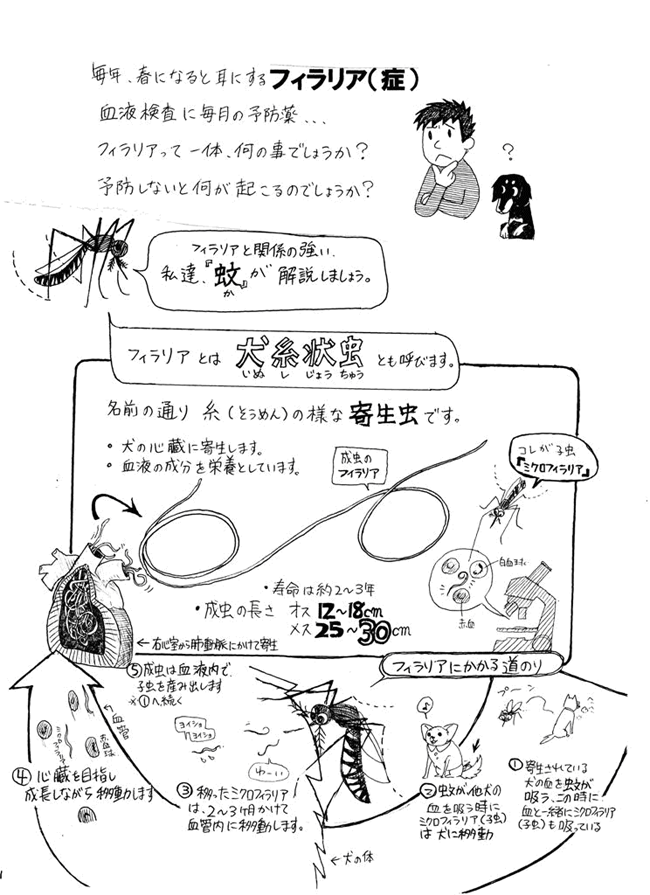 毎年、春になると耳にするフィラリア(症)
血液検査に毎月の予防薬...
フィラリアって一体、何の事でしょうか?
予防しないと何が起こるのでしょうか?
?
フィラリアと関係の強い、
私達、『蚊』が解説しましょう。
か
フィラリアとは 犬糸状虫 とも呼びます。
いぬ し じょう ちゅう
名前の通り 糸(とうめん)の様な寄生虫です。
・犬の心臓に寄生します。
・血液の成分を栄養としています。
成虫の
フィラリア
コレが子虫
『ミクロフィラリア』
白血球
赤血
・寿命は約2~3年
・成虫の長さ オス 12~18cm
メス 25~30cm
←右心室から肺動脈にかけて寄生
フィラリアにかかる道のり
⑤成虫は血液内で
子虫を産み出します
※①へ続く
血管
赤血球
ミクロフィラリア
④心臓を目指し
成長しながら移動します
ヨイショ
ヨイショ
わーい
③移ったミクロフィラリア
は、2~3ヶ月かけて
血管内に移動します。
←犬の体
♪
②蚊が他犬の
血を吸う時に
ミクロフィラリア(子虫)
は犬に移動
プーン
①寄生されている
犬の血を蚊が
吸う、この時に
血と一緒にミクロフィラリア
(子虫)も吸っている